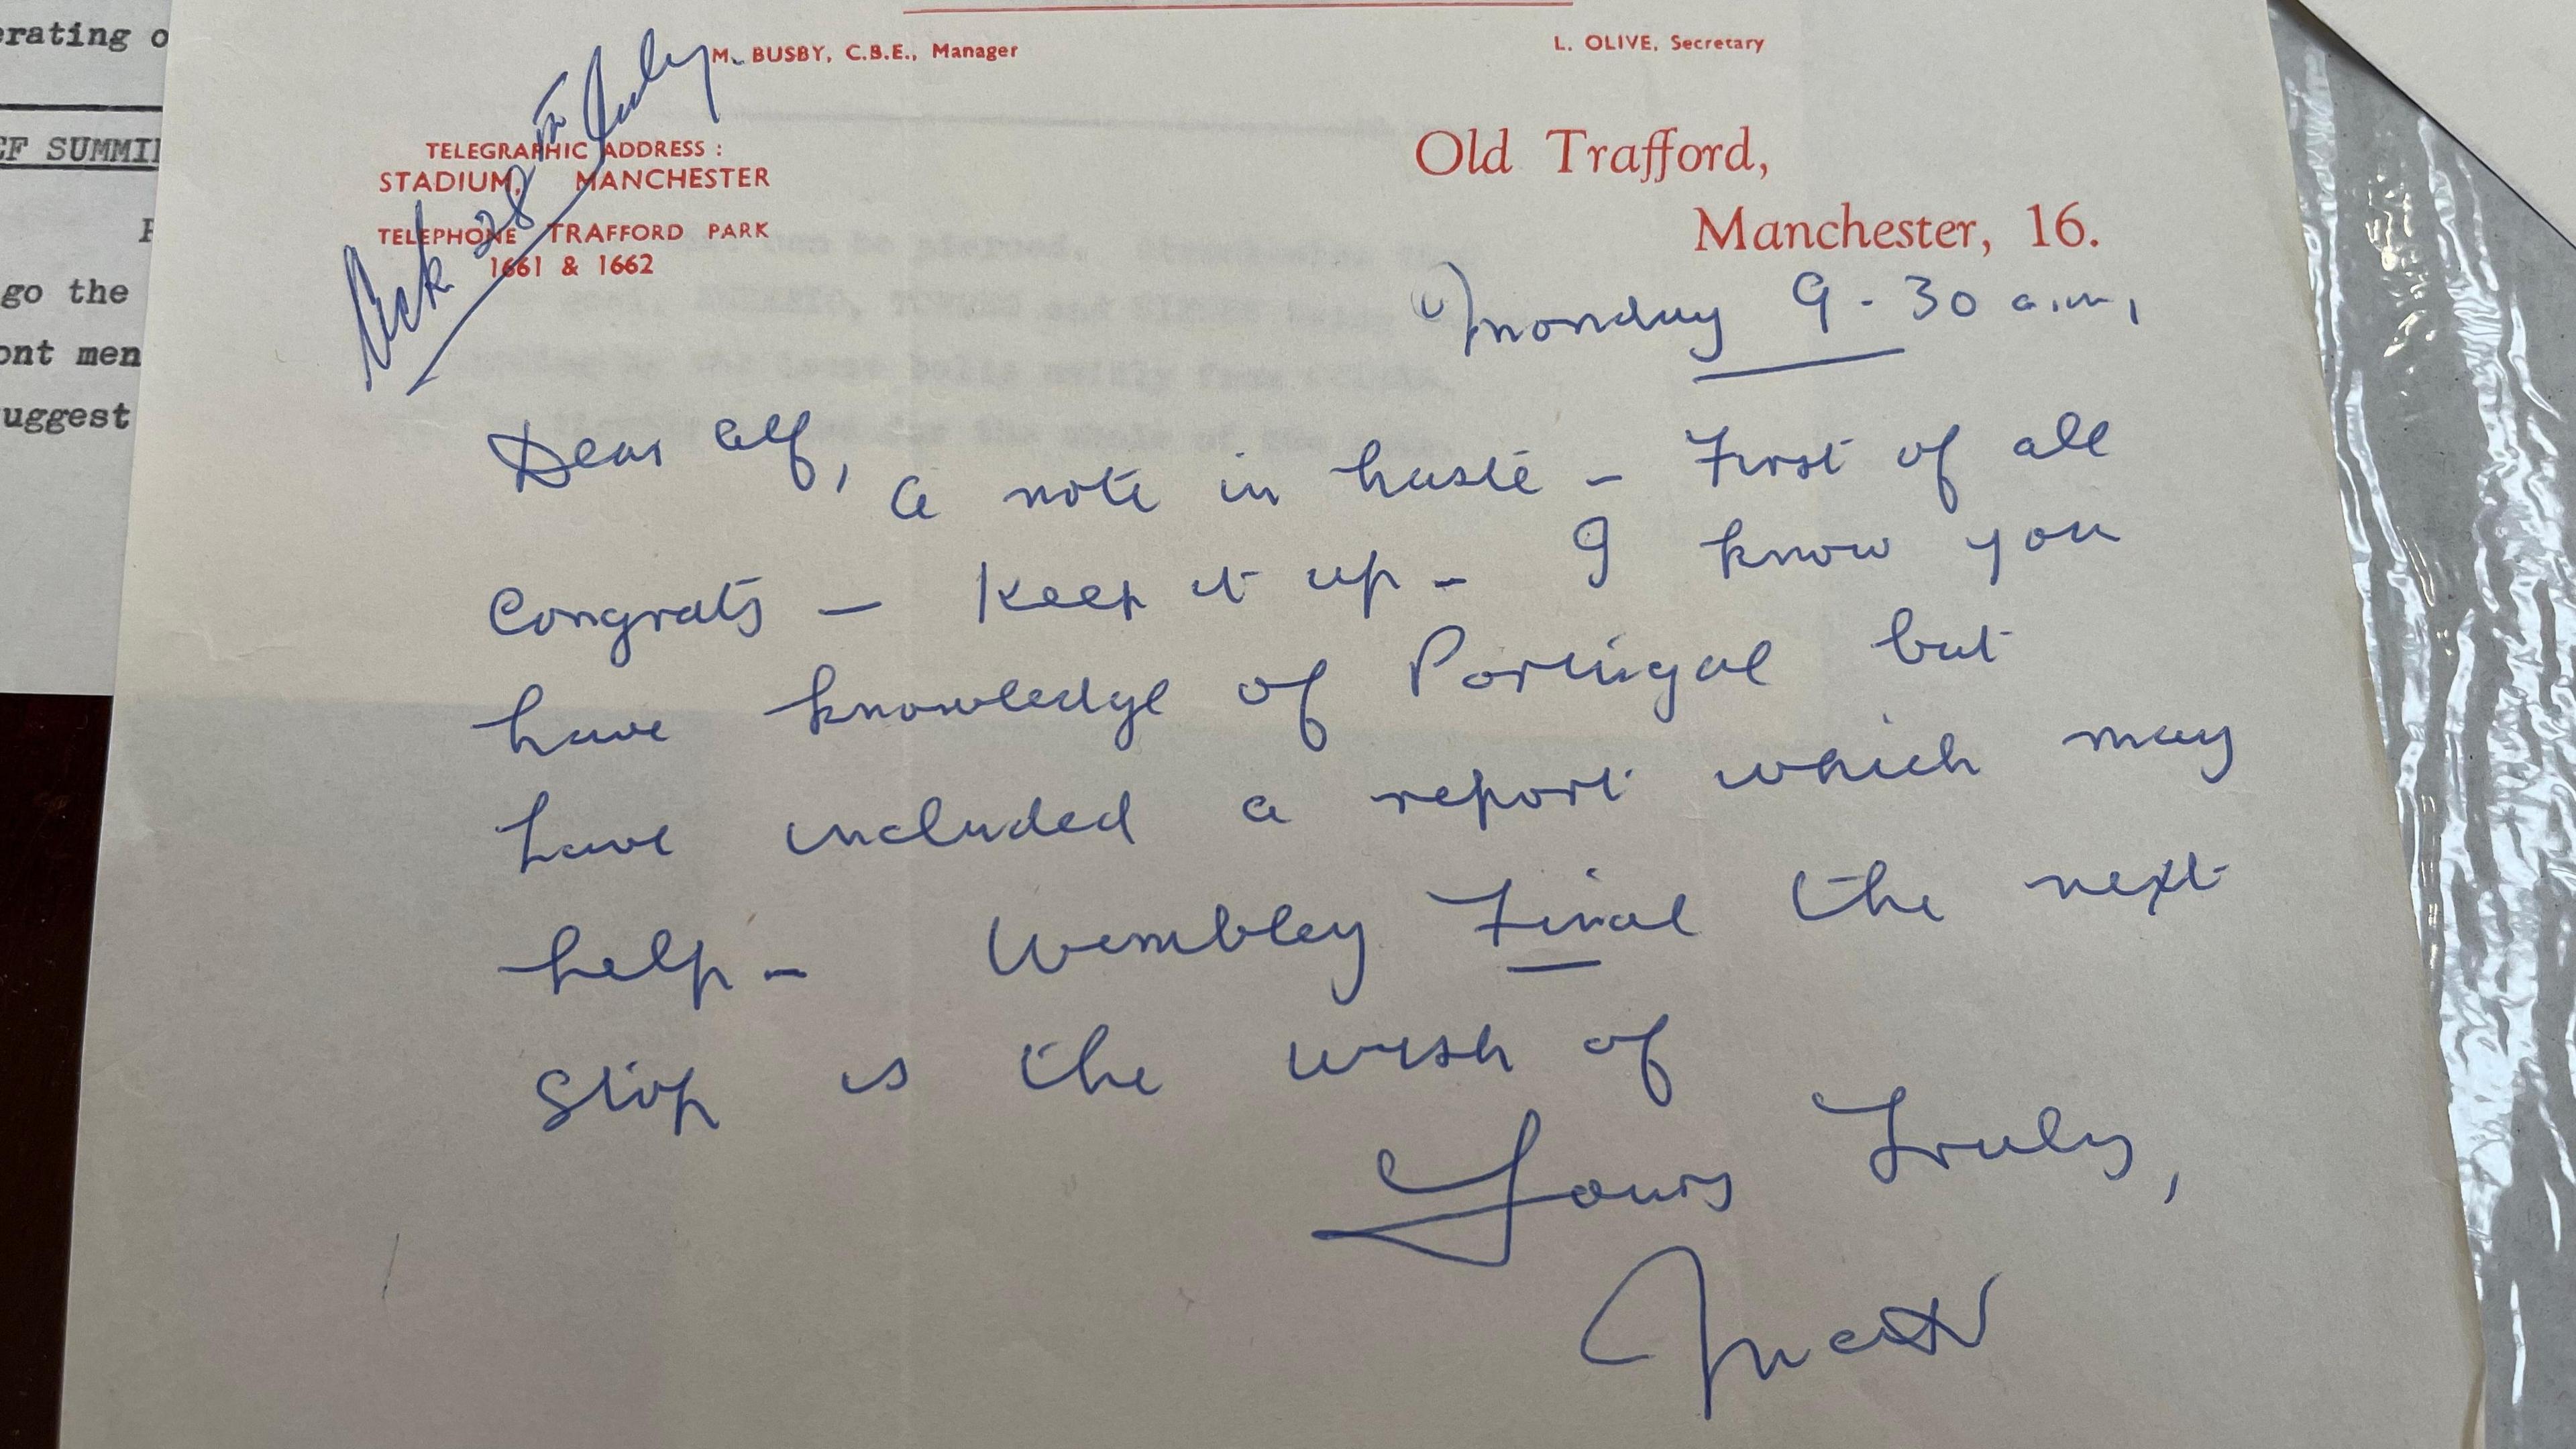 erating o
EF SUMMI
go the
ont men
uggest
M. BUSBY, C.B.E., Manager
L. OLIVE, Secretary
Ack 28th July
TELEGRAPHIC ADDRESS :
STADIUM, MANCHESTER
TELEPHONE TRAFFORD PARK
1661 & 1662
Old Trafford,
Manchester, 16.
Monday 9-30 a.m,
Dear Alf, a note in haste - First of all
Congrats - Keep it up - I know you
have knowledge of Portugal but
have included a report which may
help - Wembley Final the next
stop is the wish of
Yours Truly,
Matt